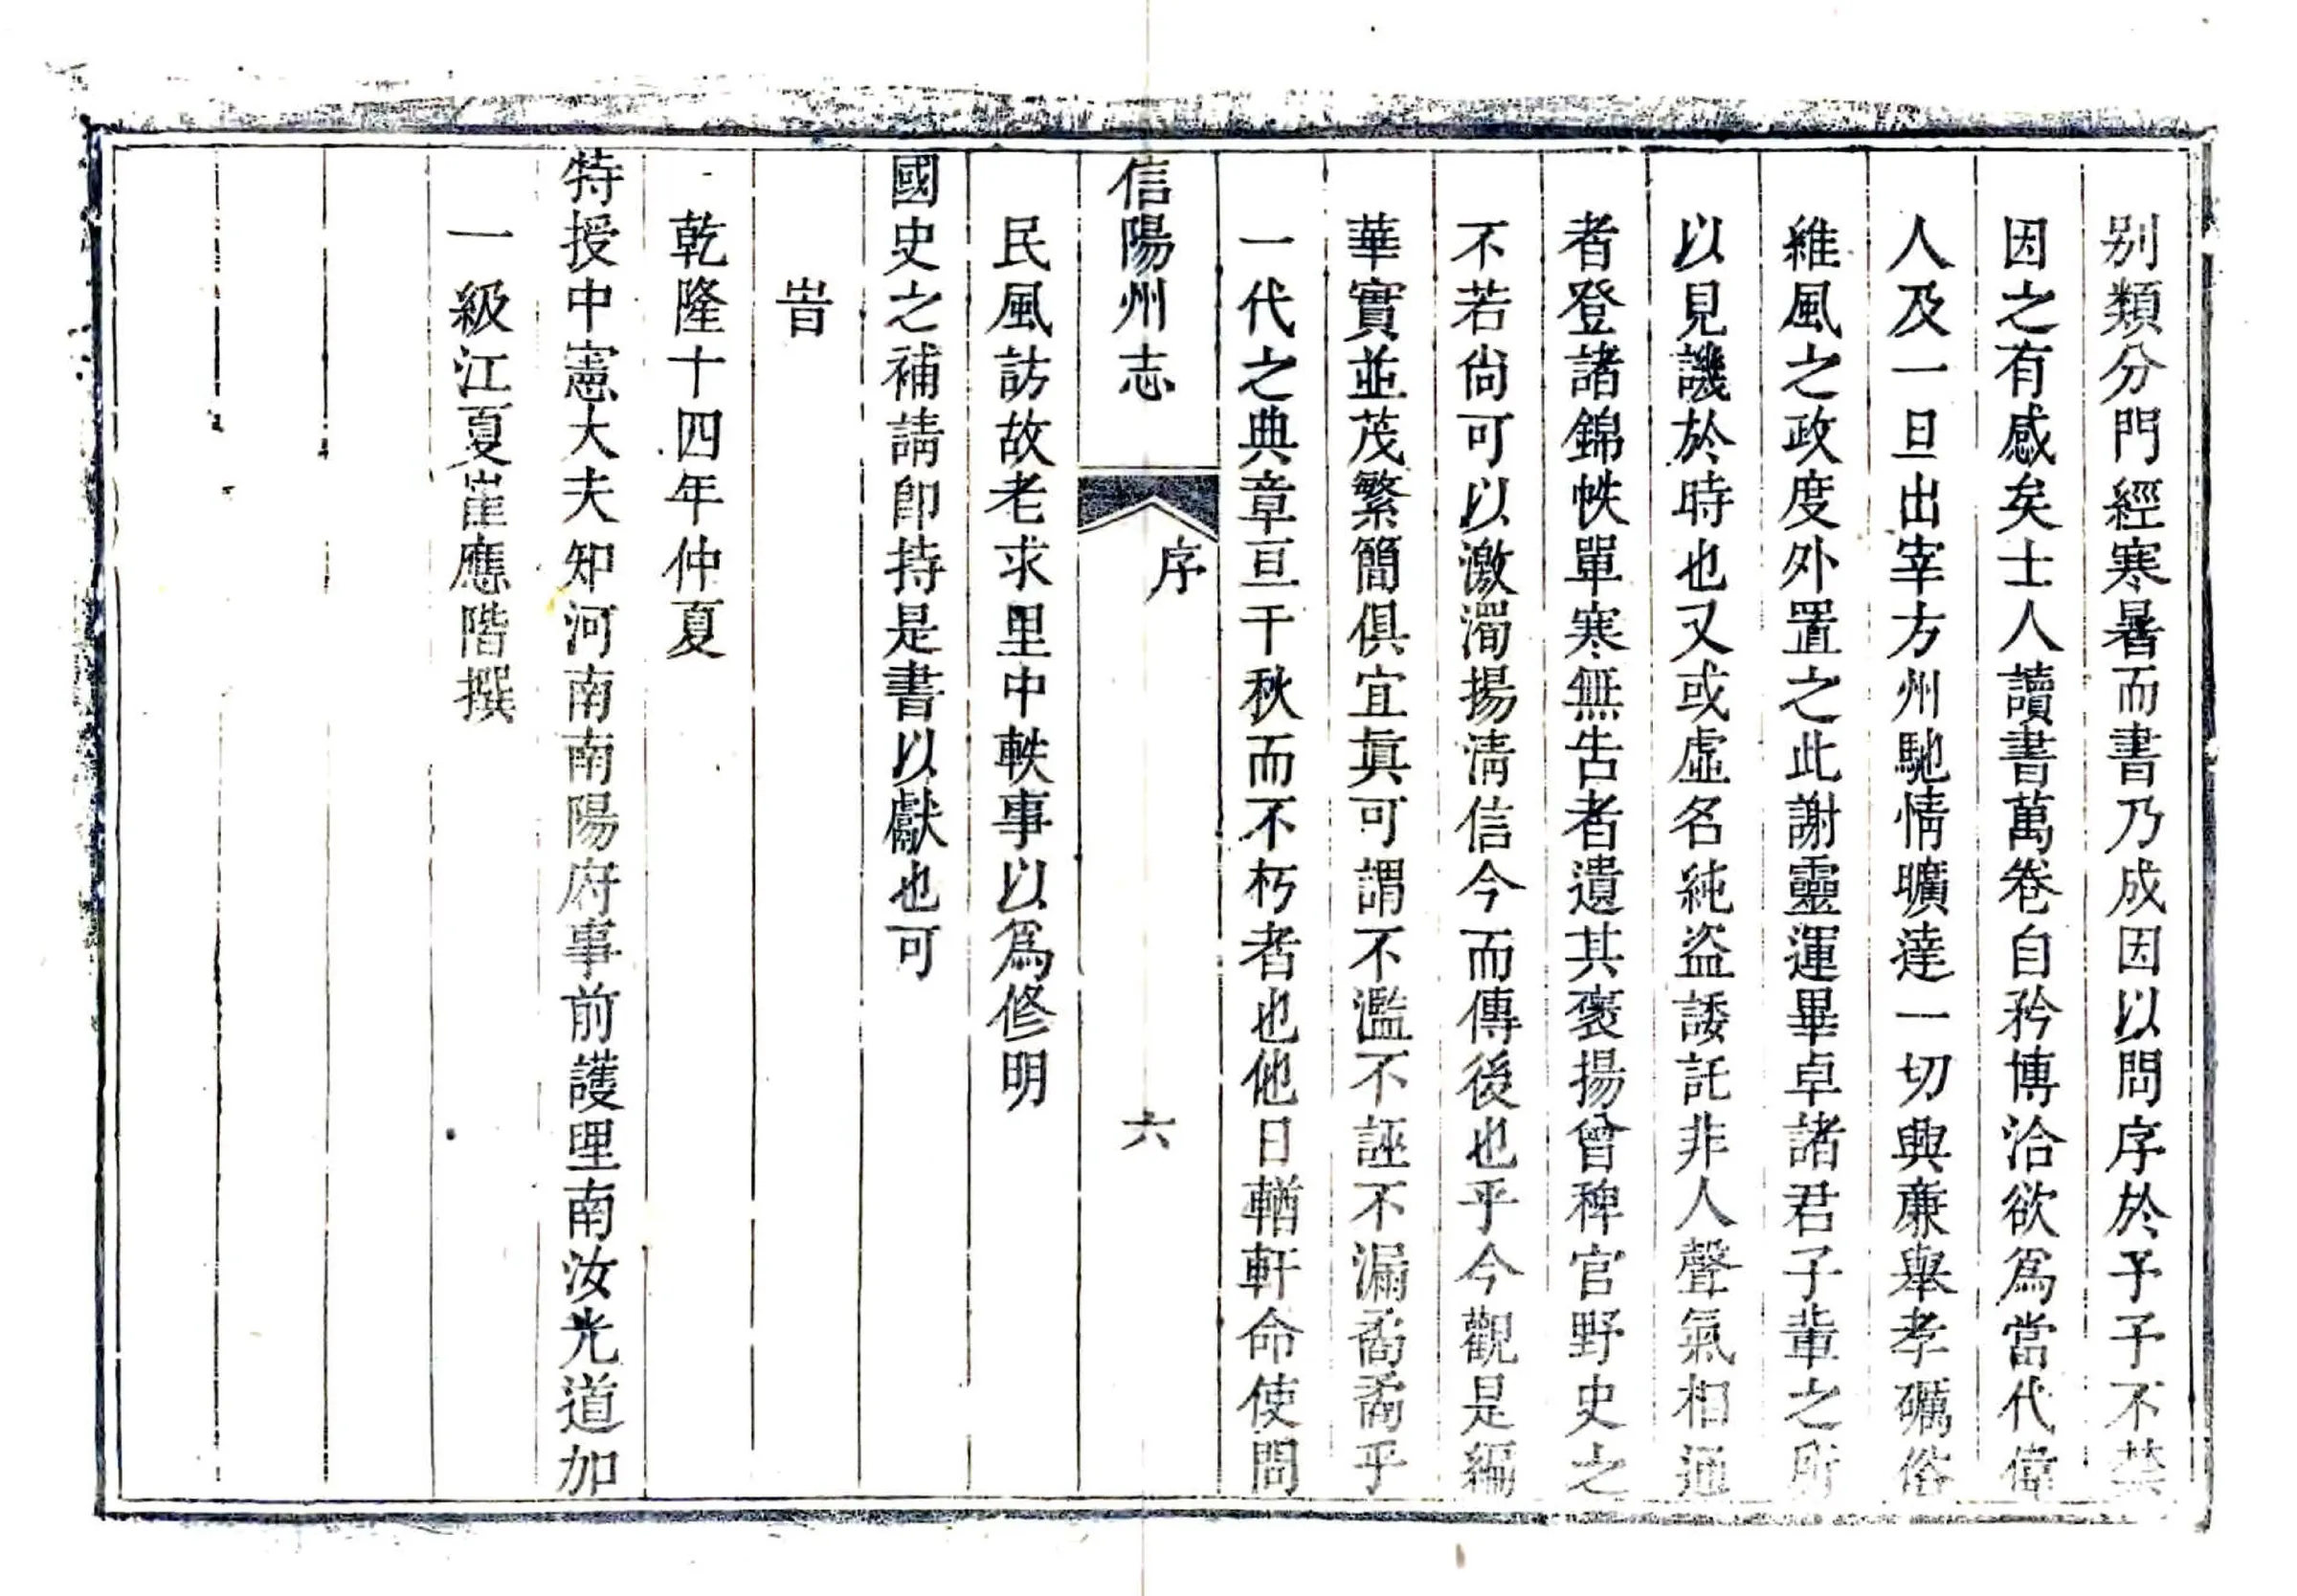 别類分門經寒暑而書乃成因以問序於予予不禁
因之有感矣士人讀書萬卷自矜博洽欲爲當代偉
人及一旦出宰方州馳情曠達一切興廉舉孝礪俗
維風之政度外置之此謝靈運畢卓諸君子輩之所
以見譏於時也又或虛名純盜諉託非人聲氣相通
者登諸錦帙單寒無告者遺其褒揚曾稗官野史之
不若尚可以激濁揚清信今而傳後也乎今觀是編
華實並茂繁簡俱宜眞可謂不濫不誣不漏矞矞乎
一代之典章亘千秋而不朽者也他日輶軒命使問
信陽州志 序 六
民風訪故老求里中軼事以爲修明
國史之補請卽持是書以獻也可
旹
乾隆十四年仲夏
特授中憲大夫知河南南陽府事前護理南汝光道加
一級江夏崔應階撰